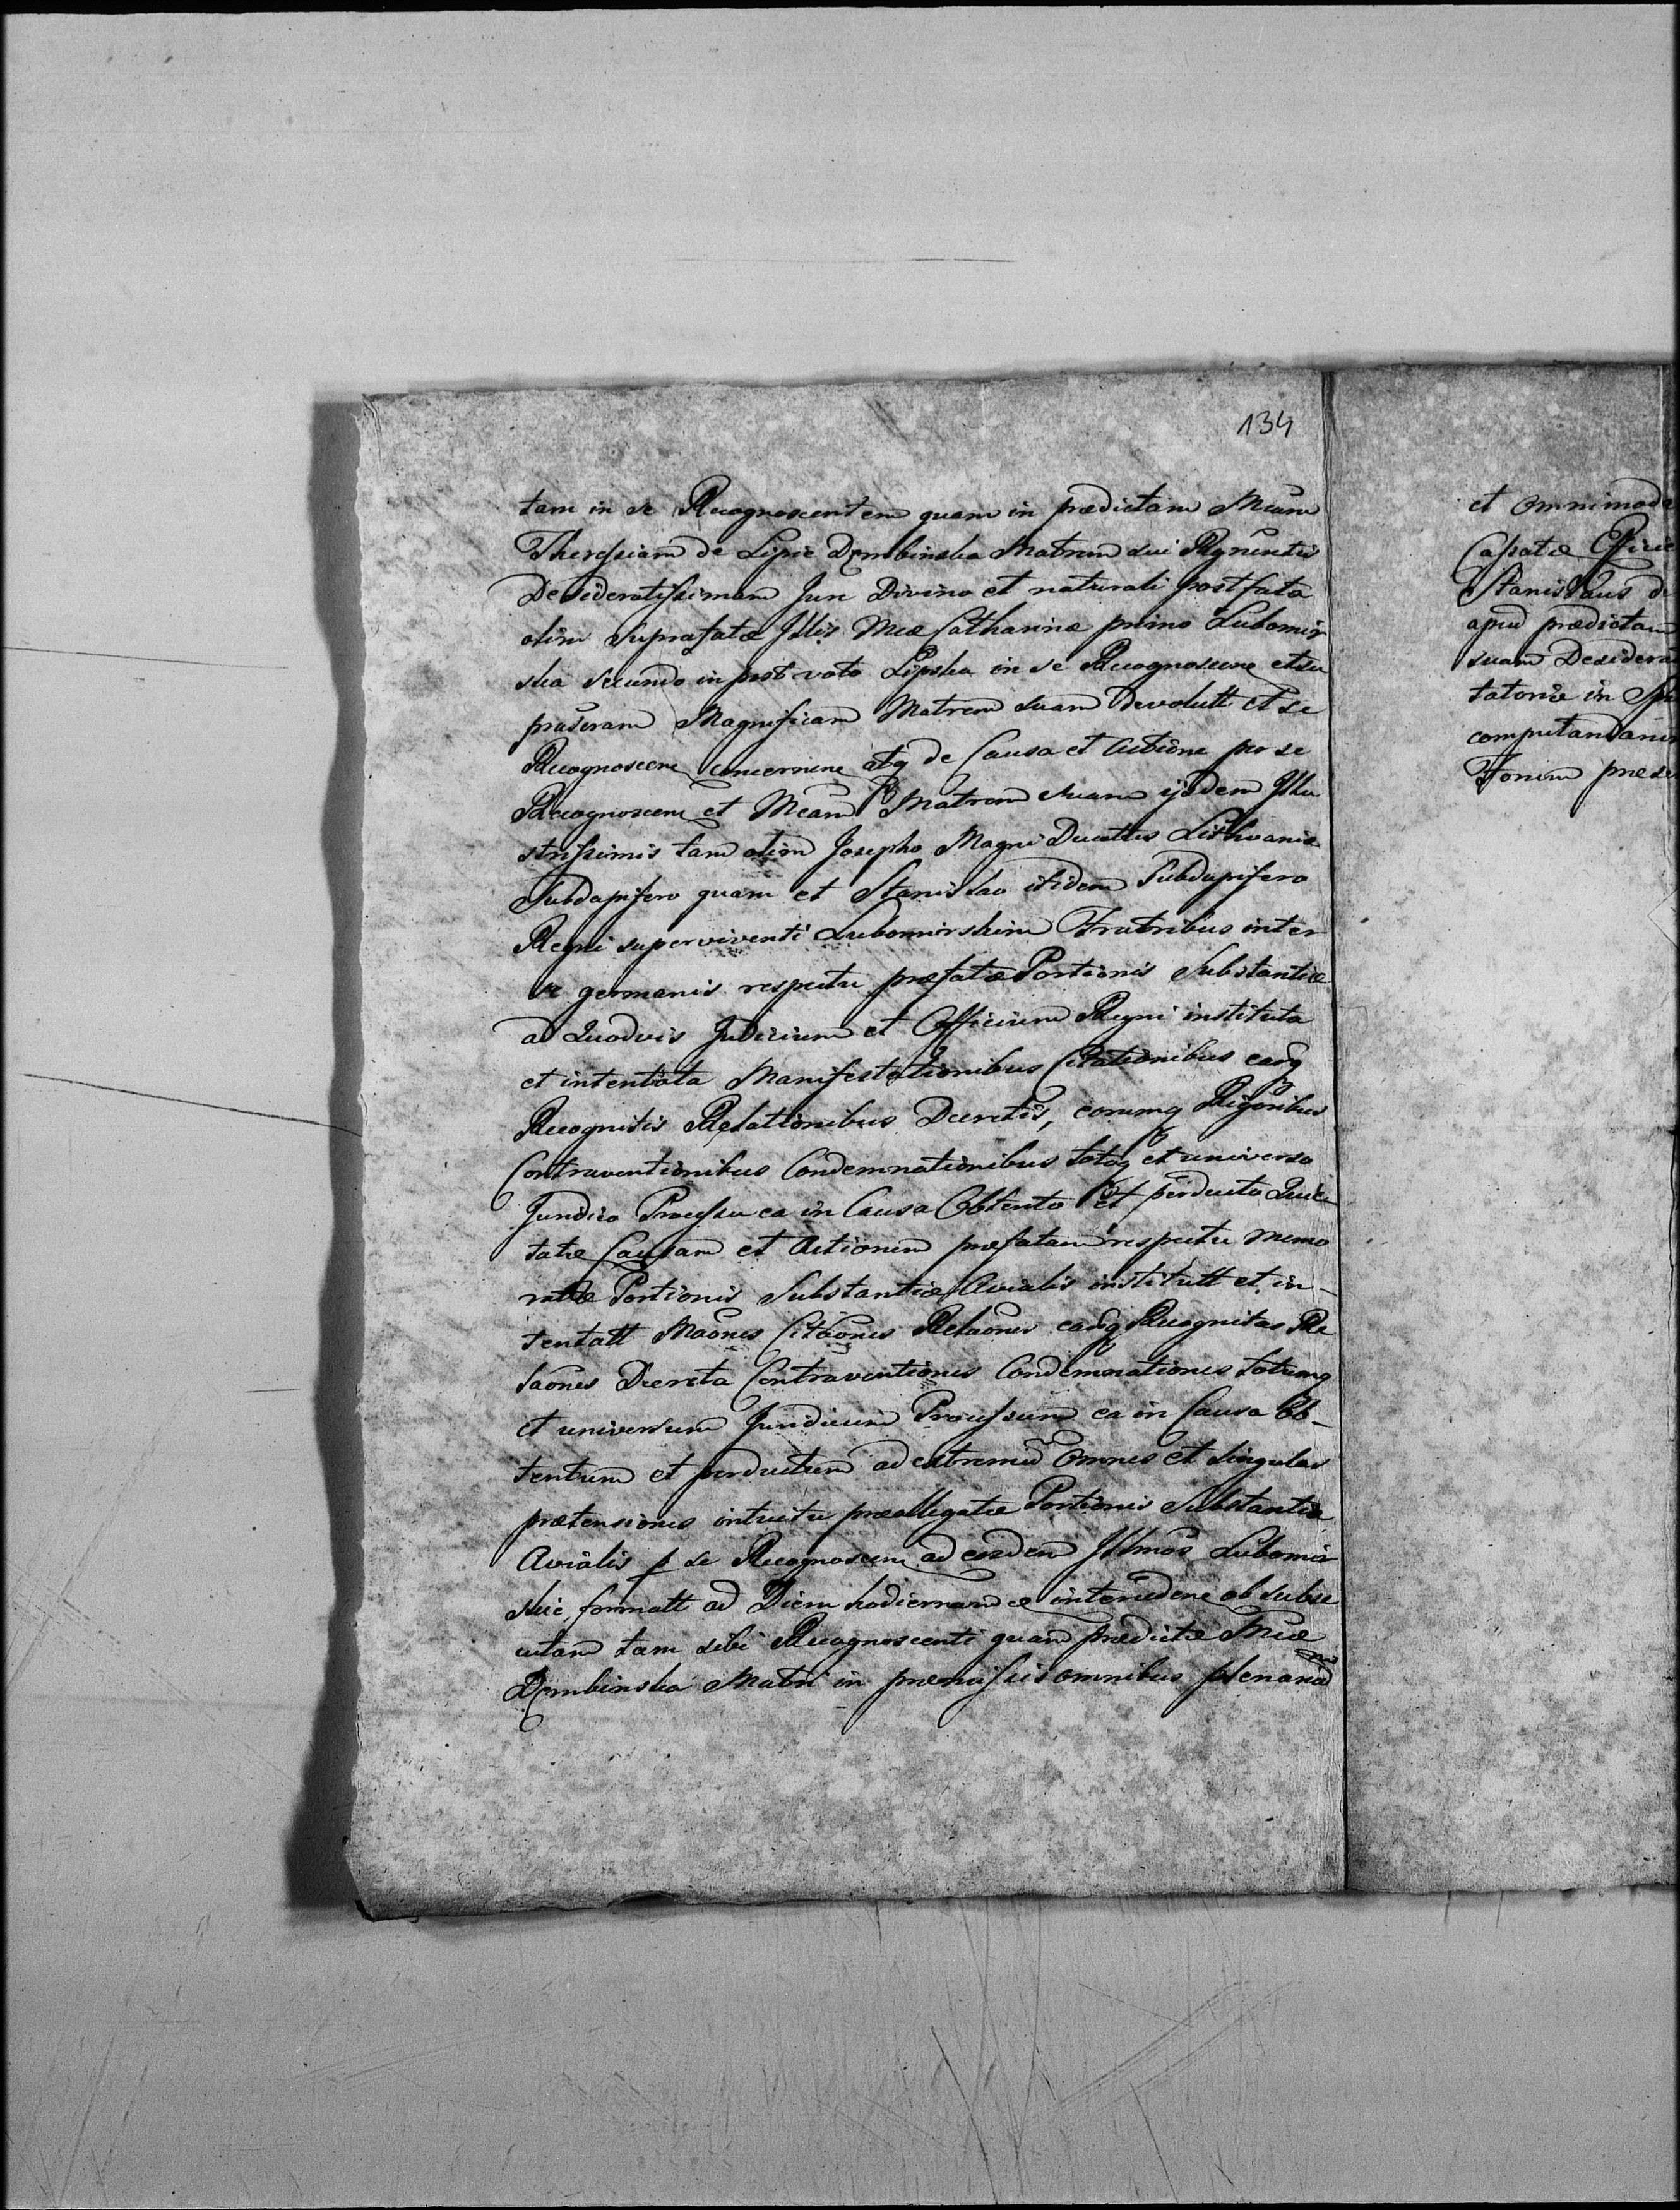 134
tam in se Recognoscentem quam in prædictam Mcam
Theressiam de Lipie Dembinska Matrem sui Rgnscntis
Desideratissimam Jure Divino et naturali post fata
olim supra fatæ Jllis Mcæ Catharinæ primo Lubomir
ska secundo in post voto Lipska in se Recognoscene et su
praseram Magnificam Matrem suam devolutt et se
Recognoscene concernene atq de Causa et Actione per se
Recognoscene et Mcam Matrem suam ijsdem Jllu
strissimis tam olim Josepho Magni Ducattus Lithvaniæ
Subdapifero quam et Stanislao itidem Subdapifero
Regni superviventi Lubomirskim Fratribus inter
se germanis respectu præfatæ Portionis Substantiæ
ad Quodvis Judicium et Officium Regni instituta
et intentata Manifestationibus Citationibus earq
Recognitis Relationibus Decretis, eorumq Rigoribus
Contraventionibus Condemnationibus totoq et universo
Juridico Processu ea in Causa Obtento et perducto Quie
tatæ Causam et Actionem præfatam respectu memo
ratæ Portionis Substantiæ Avialis institutt et in-
tentatt Maones Citaones Relaones earq Recognitas Re
laones Decreta Contraventiones Condemnationes totumq
et universum Juridicum Processum ea in Causa Ob-
tentum et perductum ad extremu Omnes et singulas
prætensiones intuitu præallegatæ Portionis Substantiæ
Avialis p se Recognoscene ad eosdem Jllmos Lubomir
skie formatt ad Diem hodiernam intercedene ob subse
cutam tam sibi Recognoscenti quam prædictæ Mcæ
Dembinska Matri in præmissis omnibus plenariam
et omnimoda
Cassatæ Officio
Stanislaus de
apud prædictam
suam Desidera
tatoriæ in
computandam
Forum præse